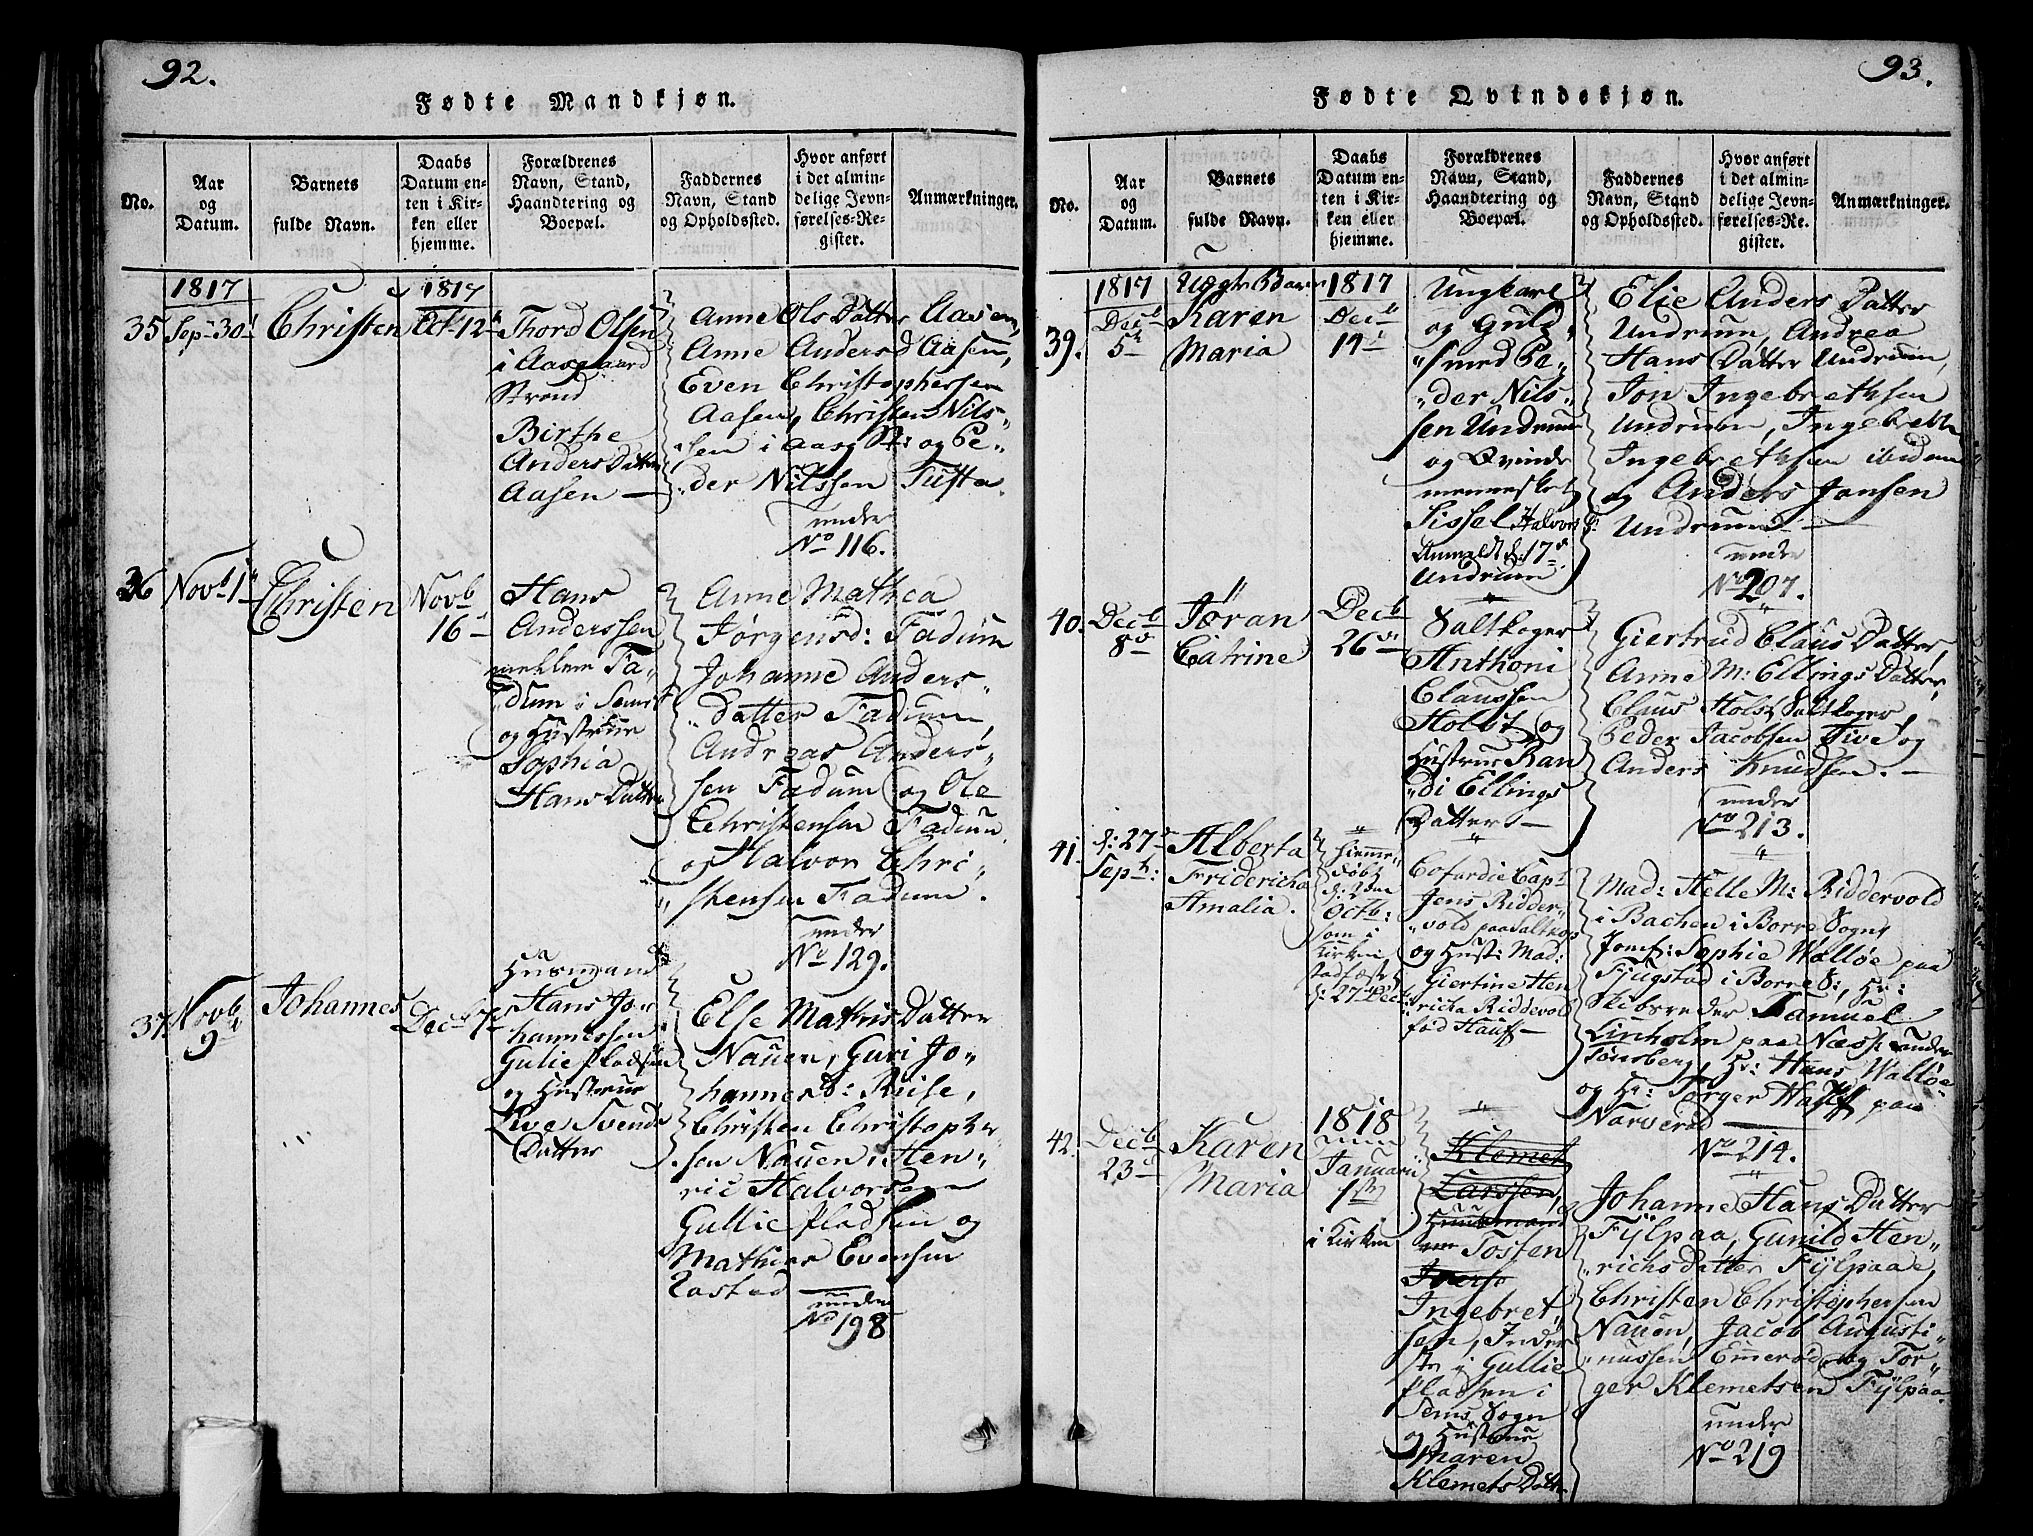 92.
Fødte Mandkjøn.
No.
Aar
og
Datum.
Barnets
fulde Navn.
Daabs
Datum en-
ten i Kir-
ken eller
hjemme.
Forældrenes
Navn, Stand,
Haandtering og
Boepæl.
Faddernes
Navn, Stand
og Opholdssted.
Hvor anført
i det almin-
delige Jevn-
førelses-Re-
gister.
Anmærkninger.
35
1817
Sep. 30
Christen
1817
Oct. 12
Thord Olsen
i Aasgaard
Strand
Birthe
Anders Datter
Aasen —
Anne Ols Datter Aasen,
Anne Andersd Aasen,
Even Christophersen
Aasen, Christen Nils-
sen i Aasg St: og Pe-
der Nilssen Tufte.
under
No 116.
36
Novb 1
Christen
Novb
16
Hans
Anderssen
mellem Fa-
dum i Sems
og Hustrue
Sophia
Hans Datter
Anne Mathea
Jørgensd: Fadum
Johanne Anders-
datter Fadum,
Andreas Anders-
sen Fadum og Ole
Christensen Fadum
og Halvor Chri-
stensen Fadum.
under
No 129.
37.
Novb
9
Johannes
Decb 7
Husmand
Hans Jo-
hannessen
Gulie Pladsen
og Hustrue
Live Svends
Datter
Else Mathis Datter
Nauen, Guri Jo-
hannesd: Ruise,
Christen Christopher-
sen Nauen, Hen-
ric Halvorsen
Gullie Pladsen og
Mathias Evensen
Rostad —
under
No 198
93.
Fødte Qvindekjøn.
No.
Aar
og
Datum.
Barnets
fulde Navn.
Daabs
Datum en-
ten i Kir-
ken eller
hjemme.
Forældrenes
Navn, Stand,
Haandtering og
Boepæl.
Faddernes
Navn, Stand
og Opholdssted.
Hvor anført
i det almin-
delige Jevn-
førelses-Re-
gister.
Anmærkninger.
39.
1817
Decb
5
Uægte Barn
Karen
Maria
1817
Decb
14
Ungkarl
og Guld-
smed Pe-
der Nils-
sen Undrum
og Qvinde
mennesket
Sissel Halvors
Anmeldt d: 17
Undrum
Elie Anders Datter
Undrum, Andrea
Hans Datter Undrum,
Jon Ingebrethsen
Undrum, Ingebreth
Ingebrethsen ibidem
og Anders Jansen
Undrum —
under
No 207.
40.
Decb
8
Jøran
Catrine
Decb
26
Saltkoger
Anthoni
Claussen
Holst og
Hustrue Ran
di Ellings
Datter —
Giertrud Claus Datter,
Anne M: Ellings Datter,
Claus Holst Saltkoger,
Peder Jacobsen Five og
Anders Knudsen. —
under
No 213.
41.
d: 27
Septb:
Alberta
Fridericha
Amalia.
Hiemme
døbt
d: 2den
Octb:
som i
Kirken
stadfæstet
d: 27 Dec
Cofardie Capt
Jens Ridder-
vold paa Saltkog
og Hust: Mad:
Giertine Hen
richa Riddervold
fød Hauff —
Mad: Helle M: Riddervold
i Bachen i Borre Sogn,
Jomf: Sophie Walløe paa
Fjugstad i Borre S:, Hr:
Skibsreder Samuel
Linholm paa Næss under
Tønsberg, Hr: Hans Walløe
og Hr: Tørger Hauff paa
Narverød
No 214.
42.
Decb
23
Karen
Maria
1818
Januarii
1ste
i Kirken
Klemet
Larssen,
Huusmand
Tosten
Iverso
Ingebret,
sen, Inder
ste i Gullie
Pladsen i
Sems Sogn
og Hustrue
Maren
Klemets Datter
Johanne Hans Datter
Fylpaa, Gunild Hen-
richsdatter Fylpaae,
Christen Christophersen
Nauen, Jacob Augusti-
nussen Emmerød, og Tor-
ger Klemetsen Fylpaa
under
No 219